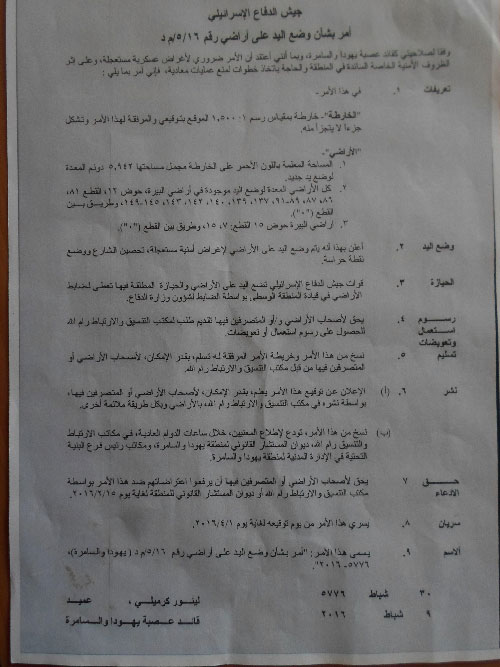 جيش الدفاع الإسرائيلي
أمر بشأن وضع اليد على أراضي رقم ٥/١٦/م د
وفقا لصلاحيتي كقائد عصبة يهودا والسامرة، وبما أنني أعتقد أن الأمر ضروري لأغراض عسكرية مستعجلة، وعلى إثر
الظروف الأمنية الخاصة السائدة في المنطقة والحاجة باتخاذ خطوات لمنع عمليات معادية، فإني أمر بما يلي:
تعريفات ١. في هذا الأمر-
"الخارطة"- خارطة بمقياس رسم ١:١,٥٠٠ الموقع بتوقيعي والمرفقة لهذا الأمر وتشكل
جزءا لا يتجزأ منه.
"الأراضي"-
١. المساحة المعلمة باللون الأحمر على الخارطة مجمل مساحتها ٥,٩٤٢ دونم المعدة
لوضع يد جديد.
٢. كل الأراضي المعدة لوضع اليد موجودة في أراضي البيرة، حوض ١٢، القطع ٨١،
٨٦، ٨٧، ٨٩-٩١، ١٣٧، ١٣٩، ١٤٠، ١٤٢، ١٤٣، ١٤٥-١٤٩، وطريق بين
القطع ("٠").
٣. أراضي البيرة حوض ١٥ القطع: ٧، ١٥، وطريق بين القطع ("٠").
وضع اليد ٢. أعلن بهذا أنه يتم وضع اليد على الأراضي لإغراض أمنية مستعجلة، تحصين الشارع ووضع
نقطة حراسة.
الحيازة ٣. قوات جيش الدفاع الإسرائيلي تضع اليد على الأراضي والحيازة المطلقة فيها تعطى لضابط
الأراضي في قيادة المنطقة الوسطى بواسطة الضابط لشؤون وزارة الدفاع.
رسوم ٤. يحق لأصحاب الأراضي و/أو المتصرفين فيها تقديم طلب لمكتب التنسيق والارتباط رام الله
استعمال للحصول على رسوم استعمال أو تعويضات.
وتعويضات
تسليم ٥. نسخ من هذا الأمر وخريطة الأمر المرفقة له تسلم، بقدر الإمكان، لأصحاب الأراضي أو
المتصرفين فيها من قبل مكتب التنسيق والارتباط رام الله.
نشر ٦. (أ) الإعلان عن توقيع هذا الأمر يعلم، بقدر الإمكان، لأصحاب الأراضي أو المتصرفين فيها،
بواسطة نشره في مكتب التنسيق والارتباط رام الله، بالأراضي وبكل طريقة ملائمة أخرى.
(ب) نسخ من هذا الأمر، تودع لإطلاع المعنيين، خلال ساعات الدوام العادية، في مكاتب الارتباط
والتنسيق رام الله، ديوان المستشار القانوني لمنطقة يهودا والسامرة، ومكاتب رئيس فرع البنية
التحتية في الإدارة المدنية لمنطقة يهودا والسامرة.
حق ٧ يحق لأصحاب الأراضي أو المتصرفين فيها أن يرفعوا اعتراضاتهم ضد هذا الأمر بواسطة
الادعاء مكتب التنسيق والارتباط رام الله أو ديوان المستشار القانوني للمنطقة لغاية يوم ٢٠١٦/٢/١٥
سريان ٨. يسري هذا الأمر من يوم توقيعه لغاية يوم ٢٠١٦/٤/١.
الاسم ٩. يسمى هذا الأمر: "أمر بشأن وضع اليد على أراضي رقم ٥/١٦/م د (يهودا والسامرة)،
٥٧٧٦- ٢٠١٦".
٣٠ شباط ٥٧٧٦ ليئور كرميلي، عميد
٩ شباط ٢٠١٦ قائد عصبة يهودا والسامرة